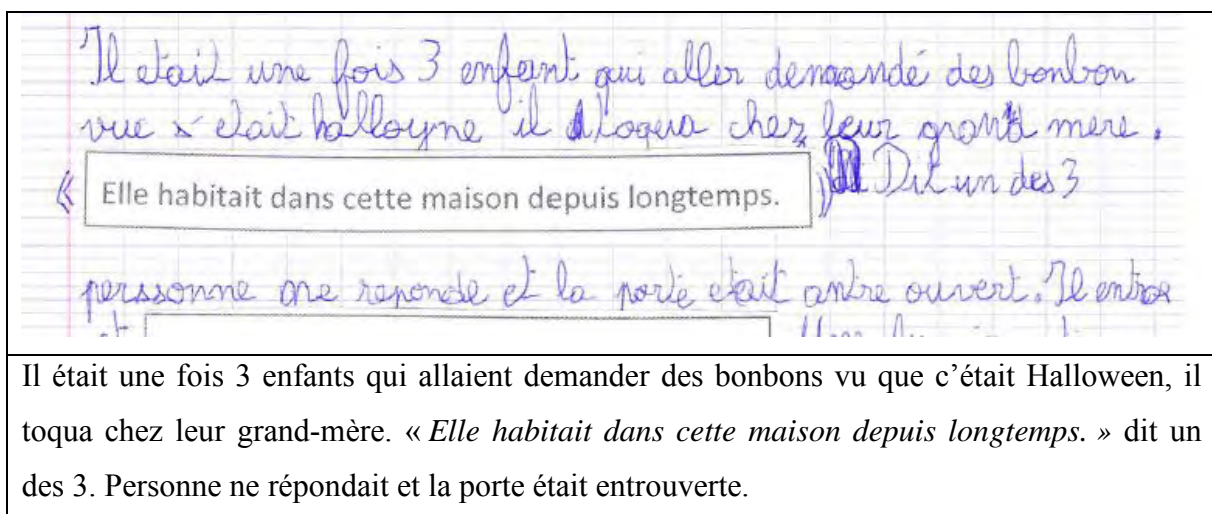 Il etait une fois 3 enfant qui aller demandé des bonbon
vue s etait halloyne il toqua chez leur grand mere.
« Elle habitait dans cette maison depuis longtemps. » Dit un des 3
perssonne ne reponde et la porte etait antre ouvert. Il entra
Il était une fois 3 enfants qui allaient demander des bonbons vu que c’était Halloween, il
toqua chez leur grand-mère. « Elle habitait dans cette maison depuis longtemps. » dit un
des 3. Personne ne répondait et la porte était entrouverte.